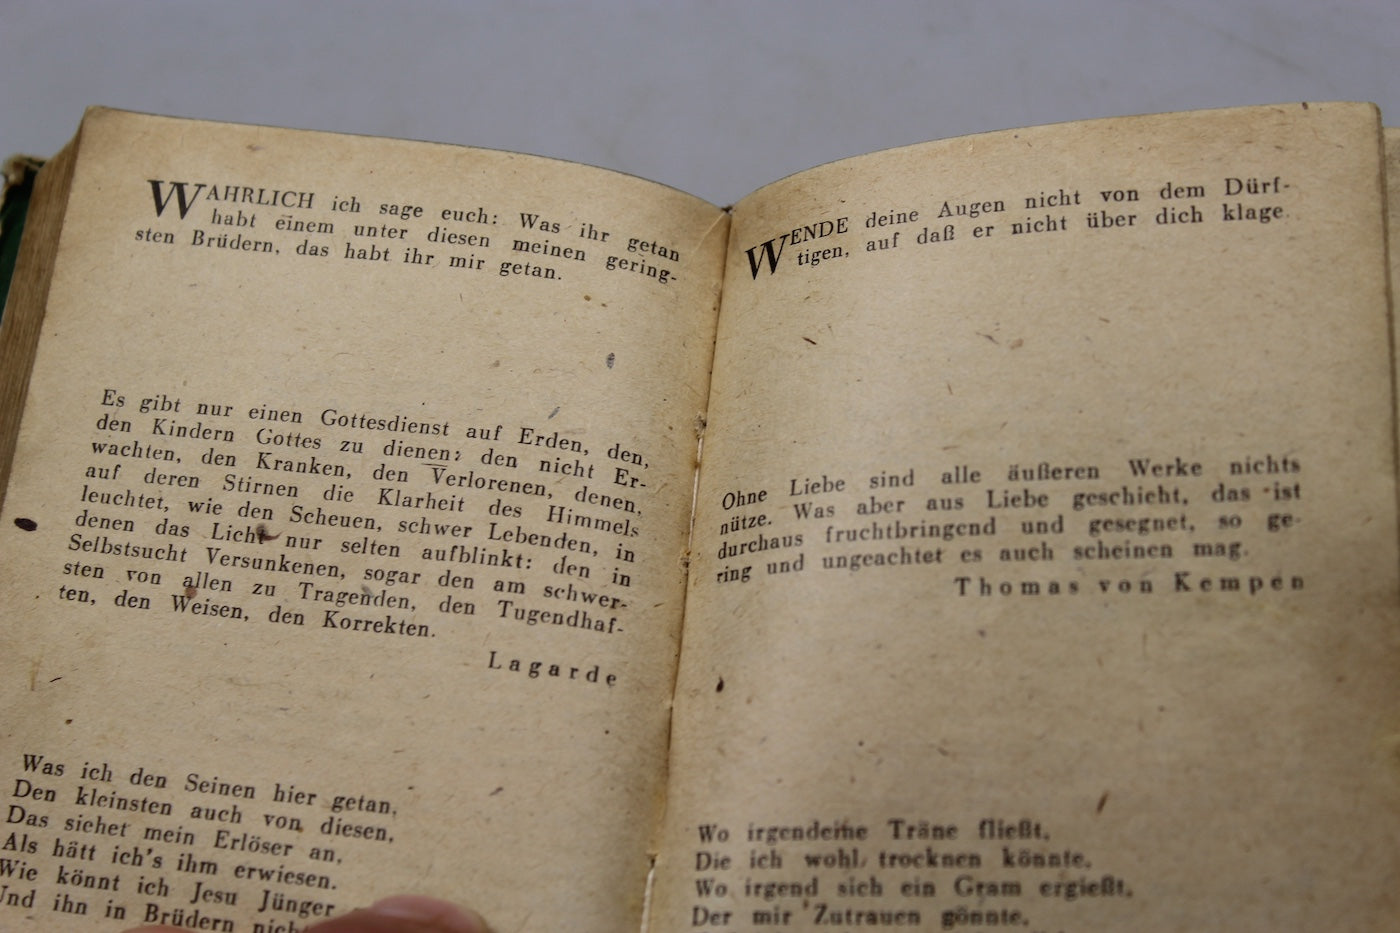 WAHRLICH ich sage euch: Was ihr getan
habt einem unter diesen meinen gering-
sten Brüdern, das habt ihr mir getan.
Es gibt nur einen Gottesdienst auf Erden, den,
den Kindern Gottes zu dienen: den nicht Er-
wachten, den Kranken, den Verlorenen, denen,
auf deren Stirnen die Klarheit des Himmels
leuchtet, wie den Scheuen, schwer Lebenden, in
denen das Licht nur selten aufblinkt: den in
Selbstsucht Versunkenen, sogar den am schwer-
sten von allen zu Tragenden, den Tugendhaf-
ten, den Weisen, den Korrekten.
Lagarde
Was ich den Seinen hier getan,
Den kleinsten auch von diesen,
Das siehet mein Erlöser an,
Als hätt ich's ihm erwiesen.
Wie könnt ich Jesu Jünger
Und ihn in Brüdern
WENDE deine Augen nicht von dem Dürf-
tigen, auf daß er nicht über dich klage.
Ohne Liebe sind alle äußeren Werke nichts
nütze. Was aber aus Liebe geschieht, das ist
durchaus fruchtbringend und gesegnet, so ge-
ring und ungeachtet es auch scheinen mag.
Thomas von Kempen
Wo irgendeine Träne fließt,
Die ich wohl trocknen könnte,
Wo irgend sich ein Gram ergießt,
Der mir Zutrauen gönnte,